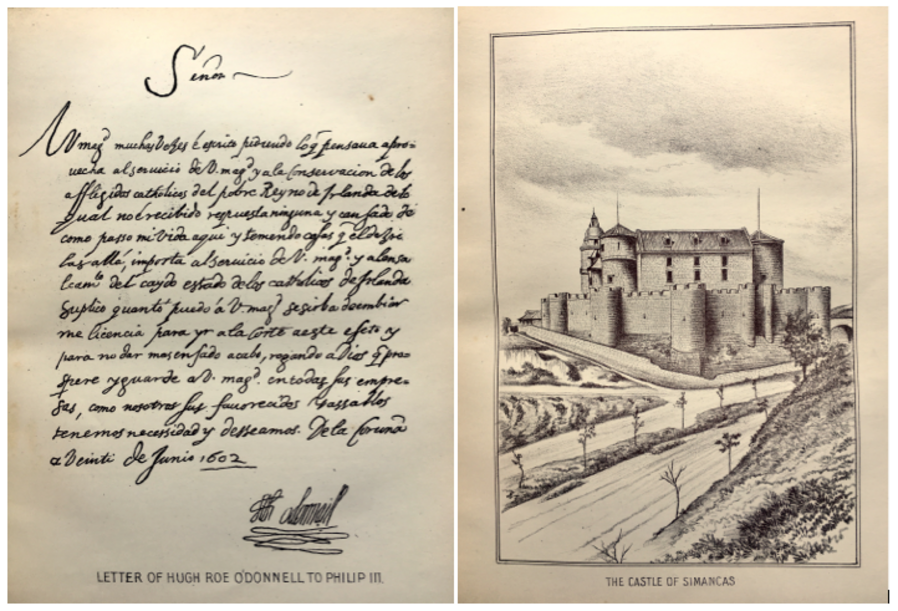 Señor
V mag.d muchas Vezes é escrito pidiendo lo q̃ pensaua apro-
uecha al seruicio de V. mag.d y a la Conseruacion de los
affligidos catholicos del pobre Reyno de Irlanda de lo
qual no é recibido respuesta ninguna y cansado de
como passo mi Vida aqui y temendo cosas q̃ el dezir
las allá, importa al seruicio de V. mag.d y
del caydo estado de los catholicos de Irlanda
Suplico quanto puedo á V. mag.d se sirba de embiar
me licencia para yr a la Corte a este efeto y
para no dar mas enfado acabo, rogando a Dios q̃ pros
pere y guarde a V. mag.d en todas sus empre-
sas, como nosotros sus fauorecidos y
tenemos necessidad y desseamos. De la Coruña
a Veinti de Junio 1602
LETTER OF HUGH ROE O'DONNELL TO PHILIP III.
THE CASTLE OF SIMANCAS